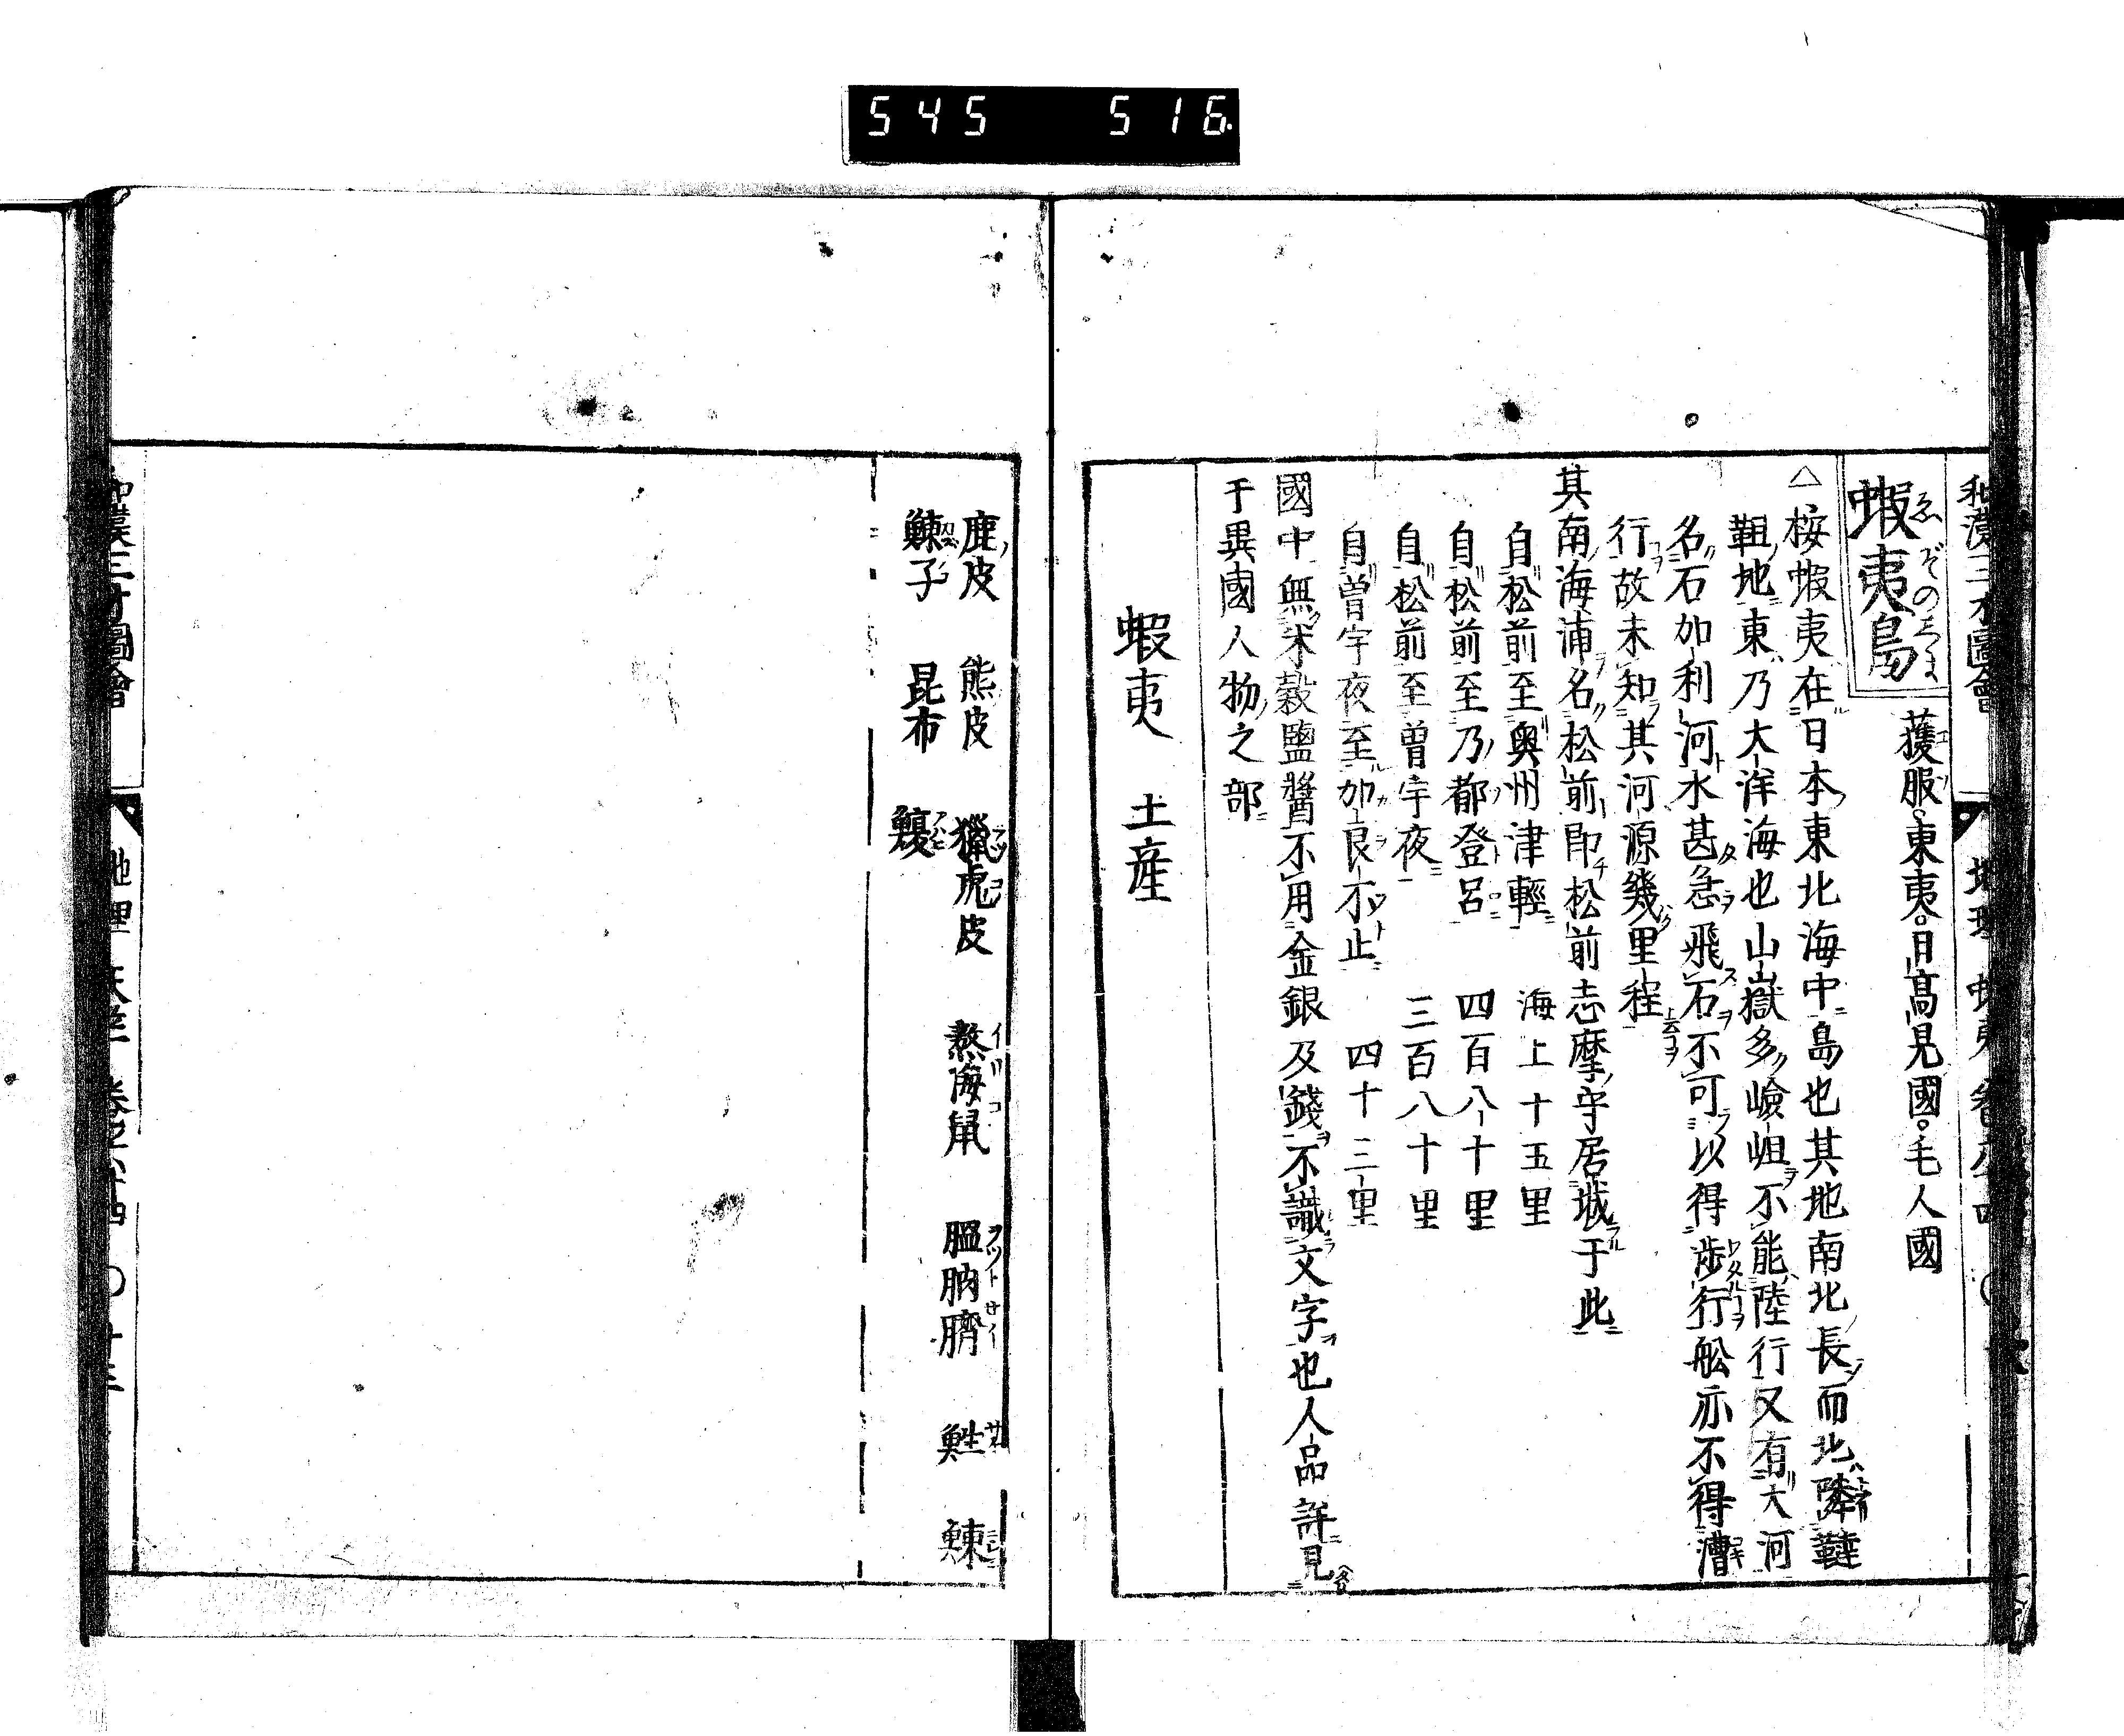 545 516
和漢三才圖會 地理
蝦夷島
ゑぞのしま
蒦服。東夷。日高見國。毛人國
△桉蝦夷在日本東北海中島也其地南北長而北隣韃
靼地東乃大洋海也山嶽多嶮岨不能陸行又有大河
名石加利河水甚急飛石不可以得渉行舩亦不得漕
行故未知其河源幾里程
其南海浦名松前卽松前志摩守居城于此
自松前至奥州津輕 海上十五里
自松前至乃都登呂 四百八十里
自松前至曽宇夜 三百八十里
自曽宇夜至加良不止 四十三里
國中無米穀鹽醬不用金銀及錢不識文字也人品詳見
于異國人物之部
蝦夷 土産
鹿皮 熊皮 獵虎皮 熬海鼠 膃肭臍 鮏 鰊
鰊子 昆布 鰒
和漢三才圖會 地理 卷之六十四